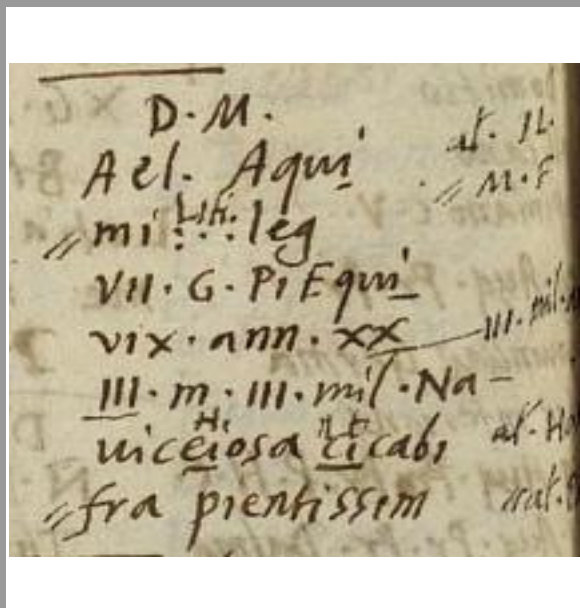 D·M·
Ael· Aqui
mi:··:leg
VII·G·PiEqui
vix·ann·XX
III·m·III·mil·Na-
uiceiosa cicabi
fra pientissim
at·
M·F
III·mil·
at·